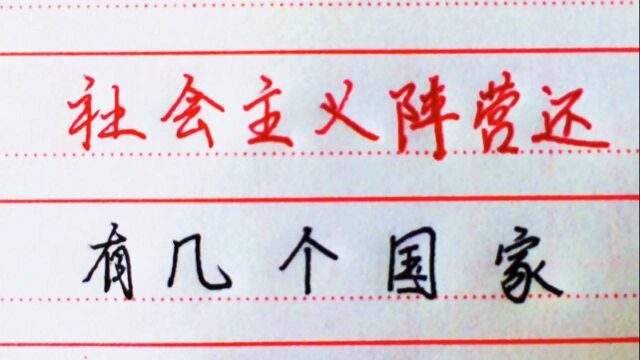 社会主义阵营还
有几个国家